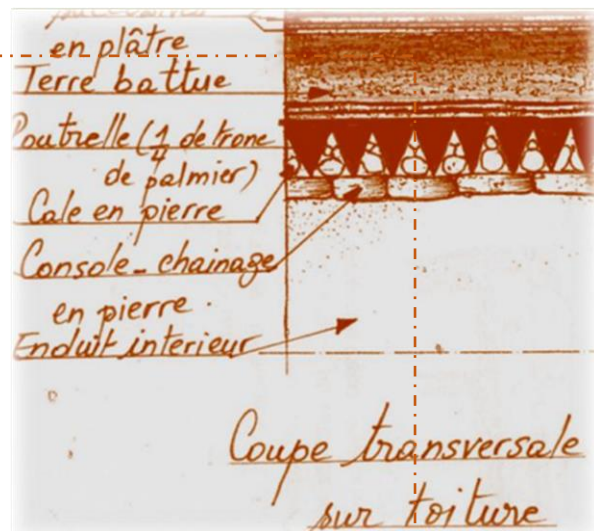 en plâtre
Terre battue
Poutrelle (1/4 de tronc
de palmier)
Cale en pierre
Console-chainage
en pierre.
Enduit interieur
Coupe transversale
sur toiture